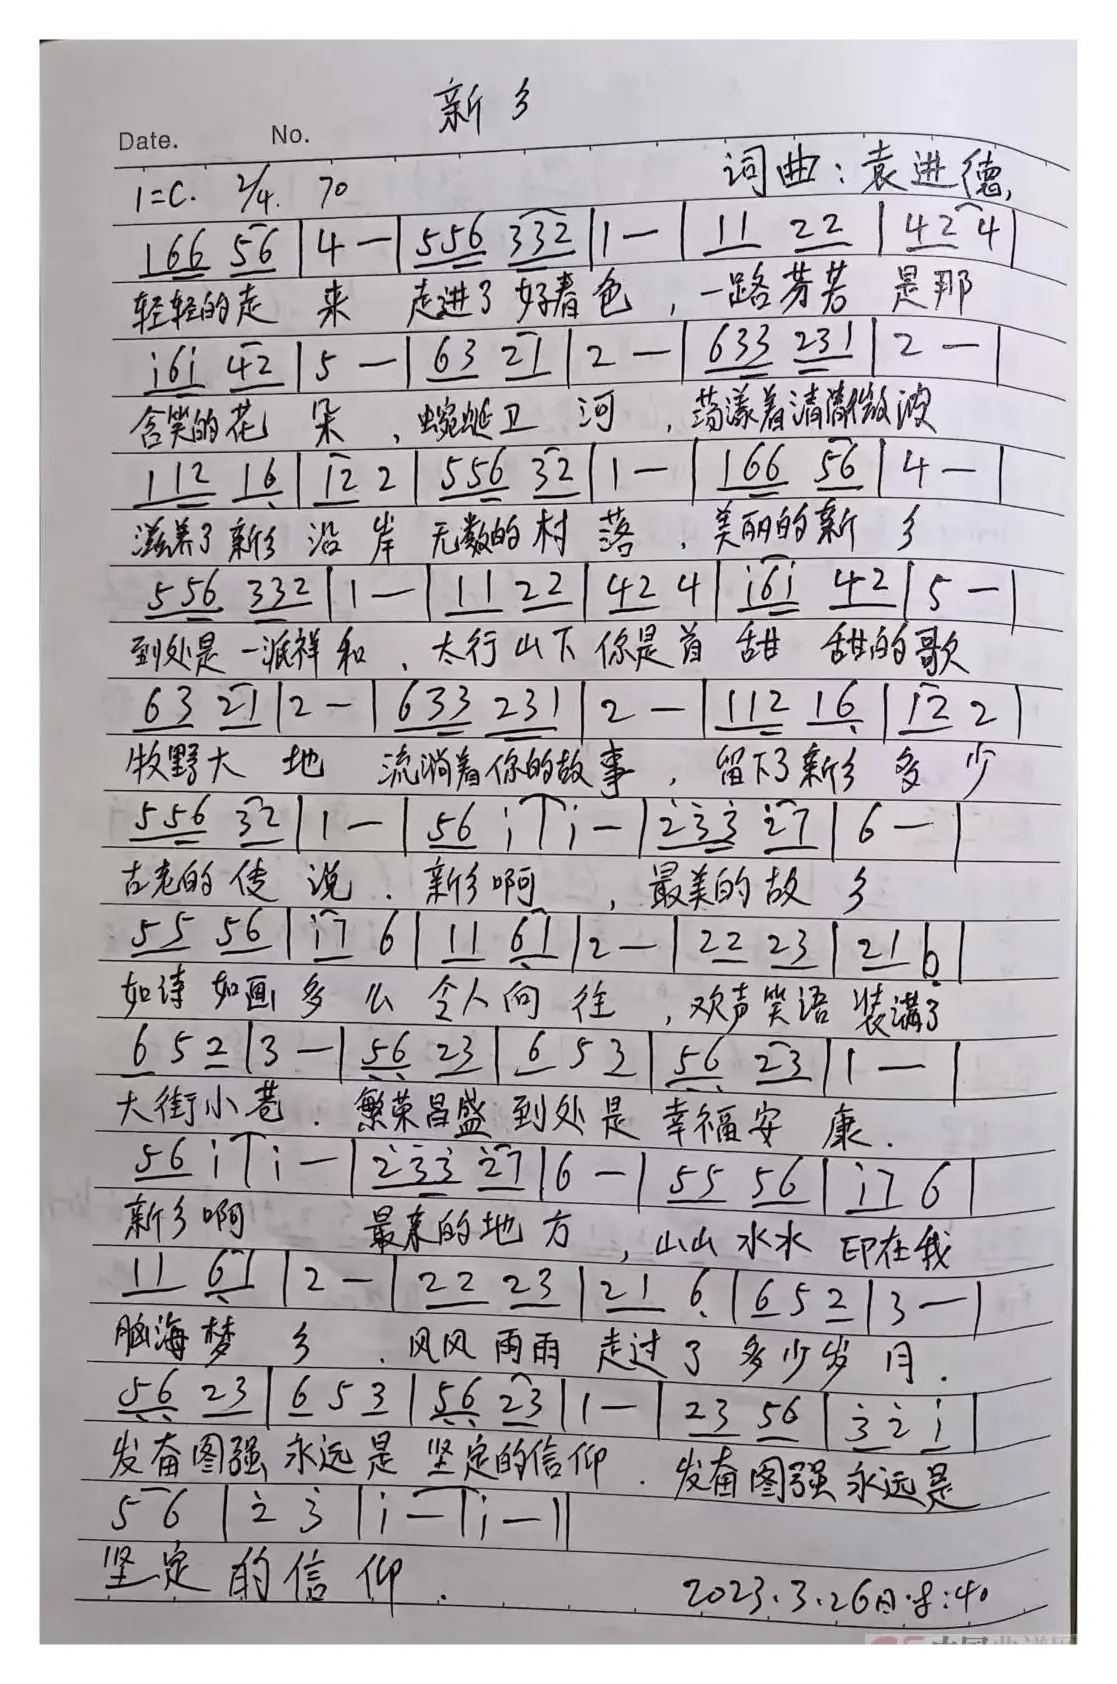 新乡
Date. No.
词曲：袁进德
1=C. 2/4. 70
166 56 | 4 — | 556 332 | 1 — | 11 22 | 42 4 |
轻轻的走 来 走进了好春色，一路芬芳 是那
i6i 42 | 5 — | 63 21 | 2 — | 633 231 | 2 — |
含笑的花 朵，蜿蜒卫 河，荡漾着清清微波
112 16 | 12 2 | 556 32 | 1 — | 166 56 | 4 — |
滋养了新乡 沿 岸 无数的村 落．美丽的新 乡
556 332 | 1 — | 11 22 | 42 4 | i6i 42 | 5 — |
到处是一派祥和．太行山下你是首 甜 甜的歌
63 21 | 2 — | 633 231 | 2 — | 112 16 | 12 2 |
牧野大 地 流淌着你的故事，留下了新乡 多 少
556 32 | 1 — | 56 i | i — | 233 27 | 6 — |
古老的传 说．新乡啊，最美的故 乡
55 56 | i7 6 | 11 61 | 2 — | 22 23 | 21 6 |
如诗 如画 多 么 令人向 往，欢声笑语 装满了
6 5 2 | 3 — | 56 23 | 6 5 3 | 56 23 | 1 — |
大街小巷．繁荣昌盛 到处是 幸福安 康．
56 i | i — | 233 27 | 6 — | 55 56 | i7 6 |
新乡啊 最亲的地 方，山山水水 印在我
11 61 | 2 — | 22 23 | 21 6 | 6 5 2 | 3 — |
脑海梦 乡．风风雨雨 走过了 多少岁 月．
56 23 | 6 5 3 | 56 23 | 1 — | 23 56 | 3 2 i |
发奋图强 永远是 坚定的信仰．发奋图强 永远是
5 6 | 2 3 | i — | i — ||
坚定 的信 仰．
2023.3.26日.8:40